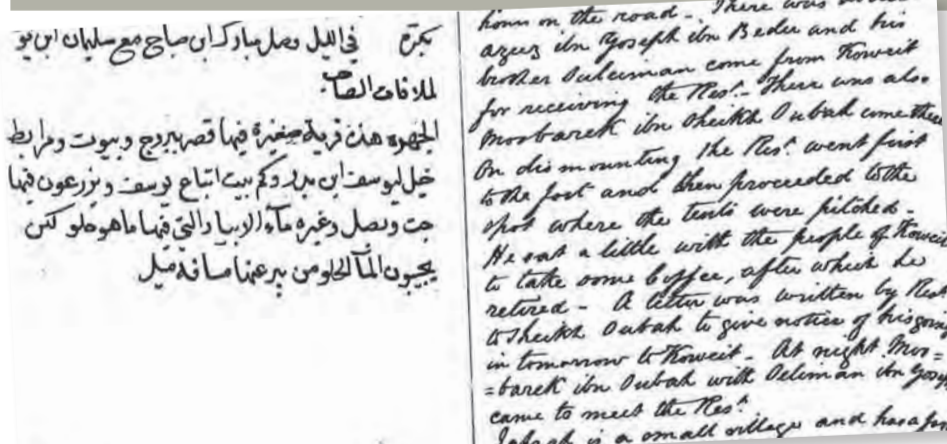 بكرة في الليل وصل مبارك ابن صباح مع سليمان ابن يو
لملاقات الصاحب
الجهره هذه قرية صغيرة فيها قصر ببروج وبيوت ومرابط
خيل ليوسف ابن بدر وكم بيت اتباع يوسف ويزرعون فيها
جت وبصل وغيره ماء الابيار التي فيها ما هو حلو لكن
يجيبون المآ الحلو من بير عنها مسافة ميل
on the road - There was
azeez ibn Yoseph ibn Beder and his
brother Suleiman come from Koweit
for receiving the Rest. - There was also
Moobarek ibn Sheikh Subah come there
On dismounting the Rest. went first
to the fort and then proceeded to the
spot where the tents were pitched -
He sat a little with the people of Koweit
to take some Coffee, after which he
retired - A letter was written by Rest
to Sheikh Subah to give notice of his going
in tomorrow to Koweit - At night Moo=
=barek ibn Subah with Seliman ibn Yoseph
came to meet the Rest.
Jahrah is a small village and has a